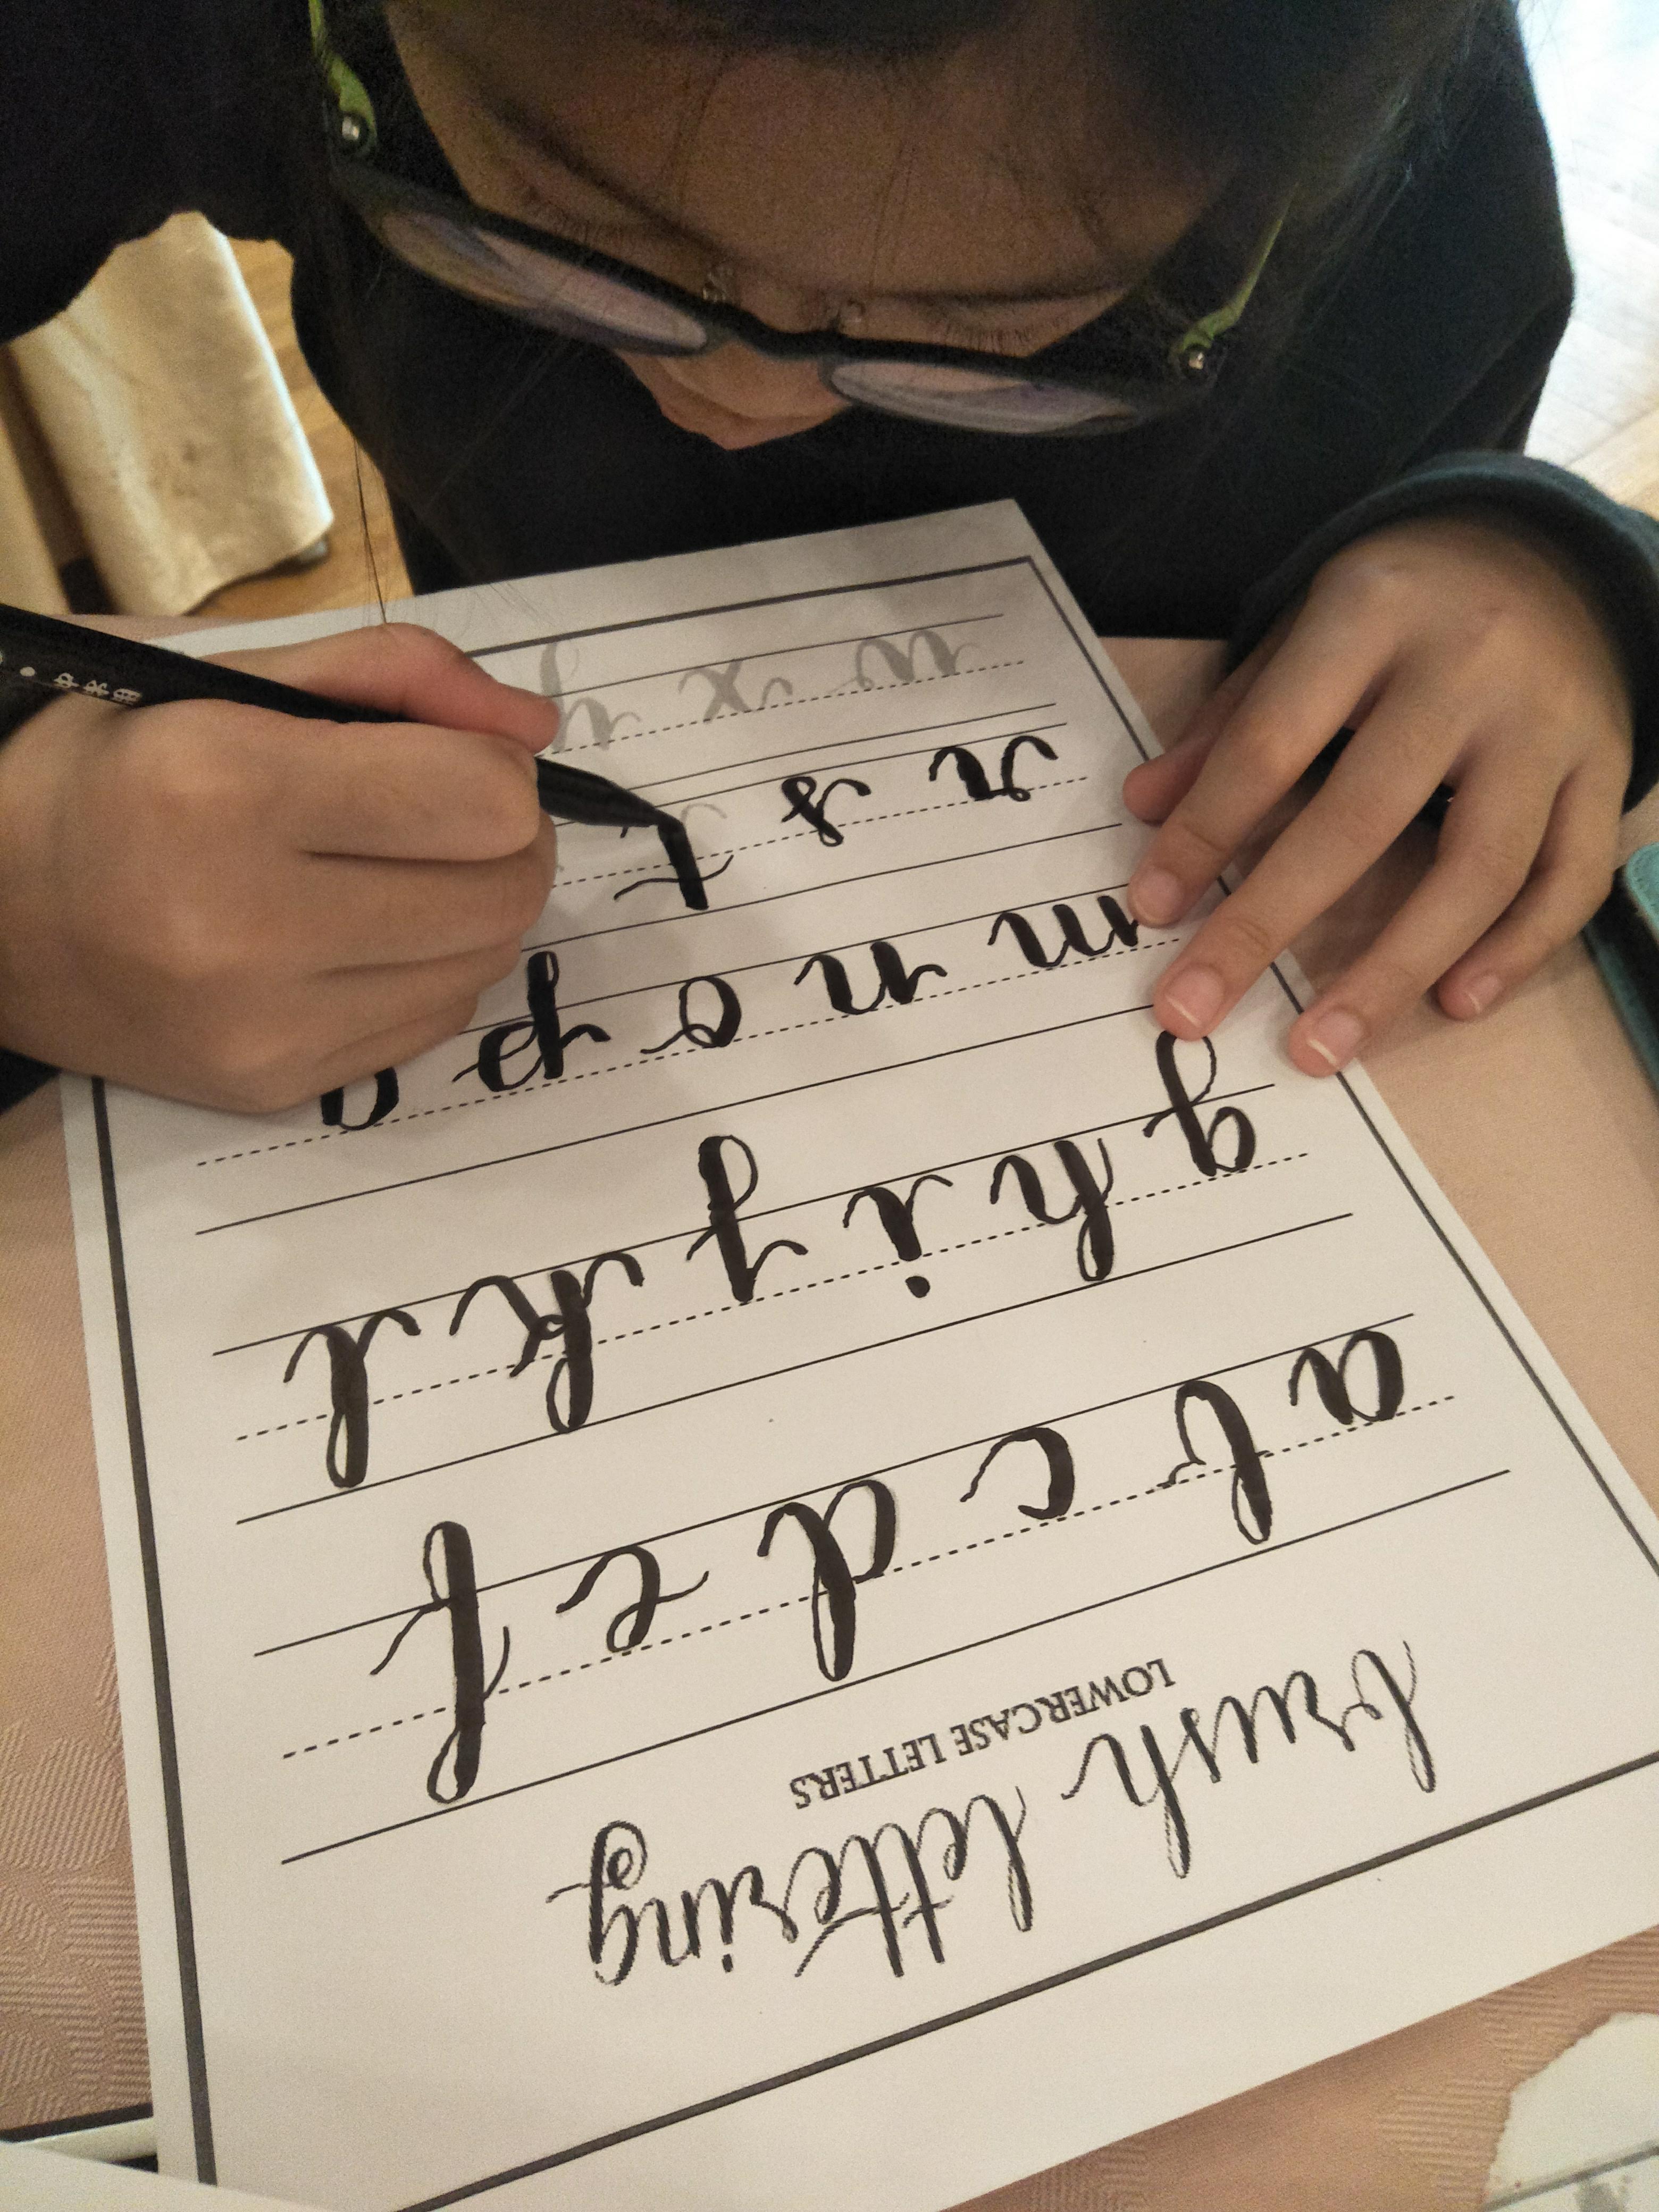 brush lettering
LOWERCASE LETTERS
a b c d e f
g h i j k l
m n o p
r s t
w x y